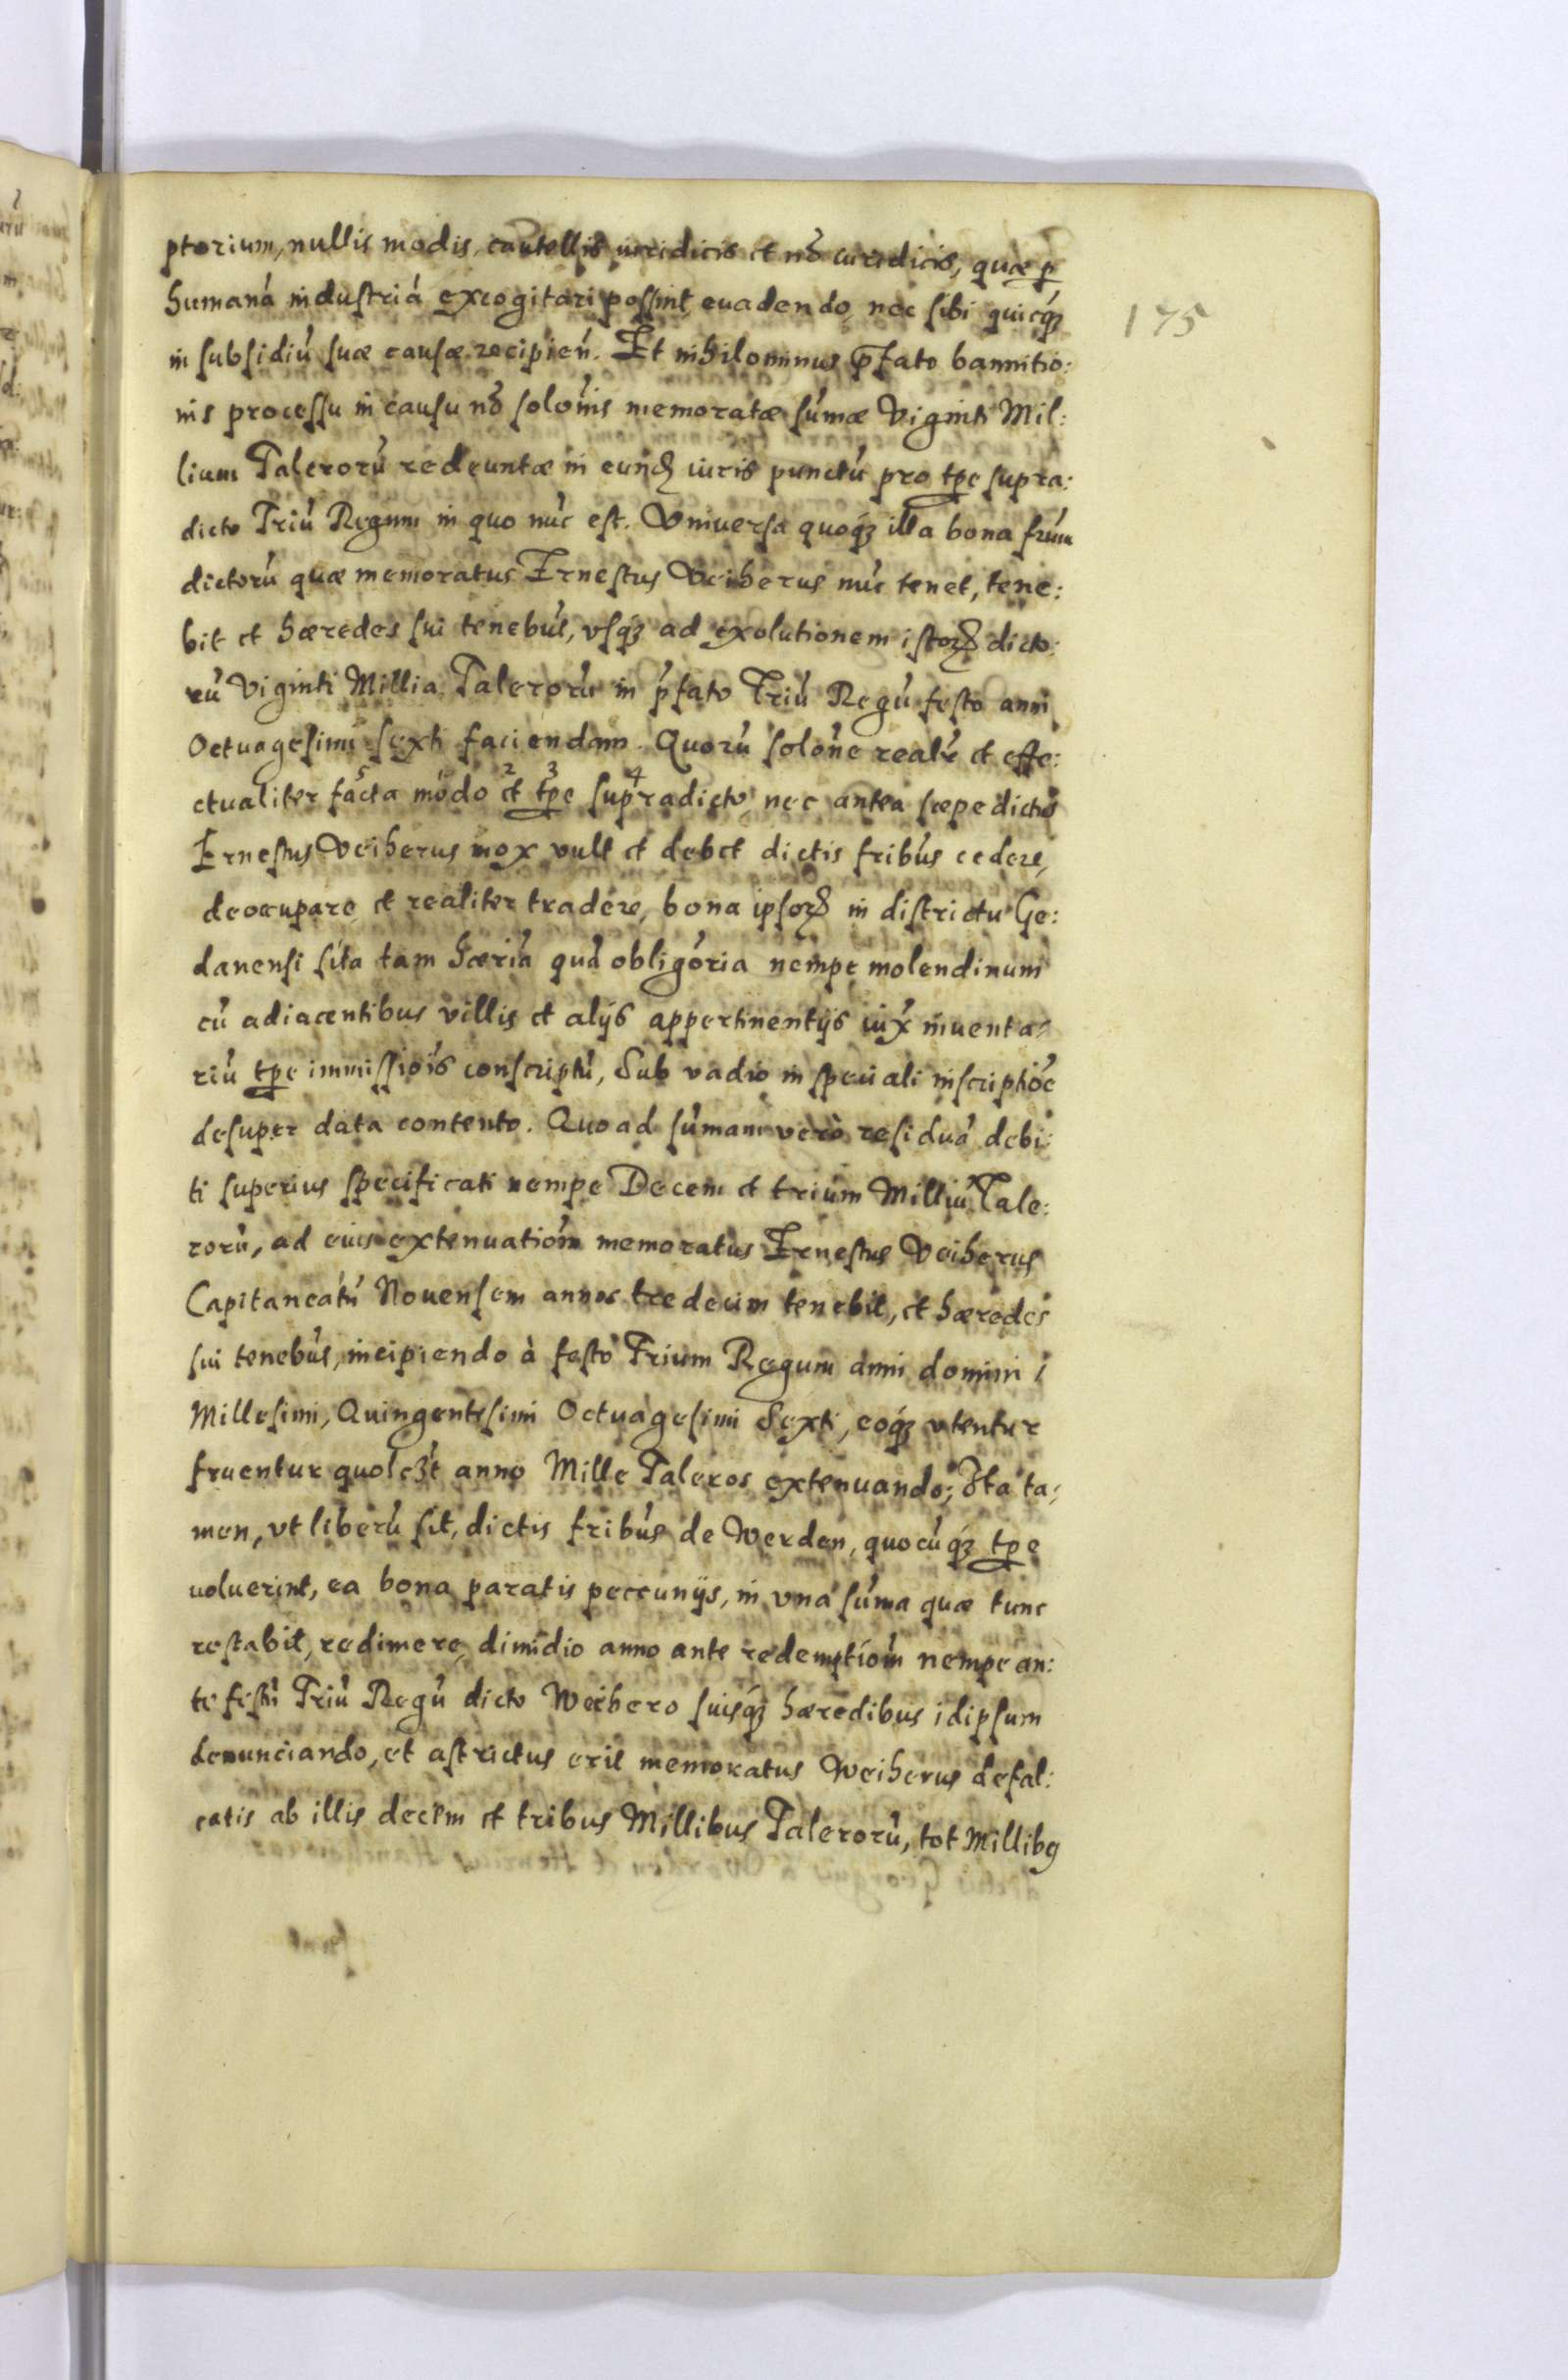 ptorium, nullis modis, cautellis iuridicis et nō iuridicis, quæ p̱
humaná industriá excogitari possint euadendo, nec sibi quicq́ꝫ
in subsidiú suæ causæ recipień. Et nihilominus p̄fato bannitio:
nis processu in causu nō soloĩnis memoratæ sũmæ Viginti Mil:
lium Talerorũ redeuntæ in eunđ iuris punctũ pro tp̱e supra:
dicto Triũ Regum in quo nũc est. Vniuersa quoq́ꝫ illa bona frũm
dictorũ quæ memoratus Ernestus Veiherus nũc tenet, tene:
bit et hæredes sui tenebũt, vsq́ꝫ ad exolutionem istorꝝ dicto:
rũ Viginti Millia Talerorũ in p̃fato Triũ Regũ festo anni
Octuagesimi sexti faciendam. Quorũ soloĩne realr̃ et effe:
ctualiter fácta módo et tp̱e supradicto, nec antea sæpe dictus
Ernestus Veiherus mox vult et debet dictis fribũs cedere,
deoccupare, et realiter tradere, bona ipsorꝝ in districtu Ge:
danensi sita tam hæriã quã obligõria nempe molendinum
cũ adiacentibus villis et alijs appertinentijs iux̃ inuenta:
riũ tp̱e immissiõis conscriptũ, Sub vadio in speciali inscriptiõe
desuper data contento. Quo ad sũmam verò residuã debi:
ti superius specificati nempe Decem et trium Milliũ Tale:
rorũ, ad eius extenuatiõm memoratus Ernestus Veiherus
Capitaneatũ Nouensem annos tredecim tenebit, et hæredes
sui tenebũt, incipiendo à festo Trium Regum anni domini
Millesimi, Quingentesimi Octuagesimi Sexti, eoq́ꝫ vtentur
fruentur quolꝫt anno Mille Taleros extenuando; Ita ta:
men, vt liberũ sit, dictis fribũs de Werden, quocũq́ꝫ tp̱e
uoluerint, ea bona paratis peccunijs, in vna sũma quæ tunc
restabit, redimere, dimidio anno ante redemptiõm nempe an:
te festũ Triũ Regũ dicto Weihero suisq́ꝫ hæredibus idipsum
denunciando, et astrictus erit memoratus Weiherus defal:
catis ab illis decem et tribus Millibus Talerorũ, tot Millibꝰ
175